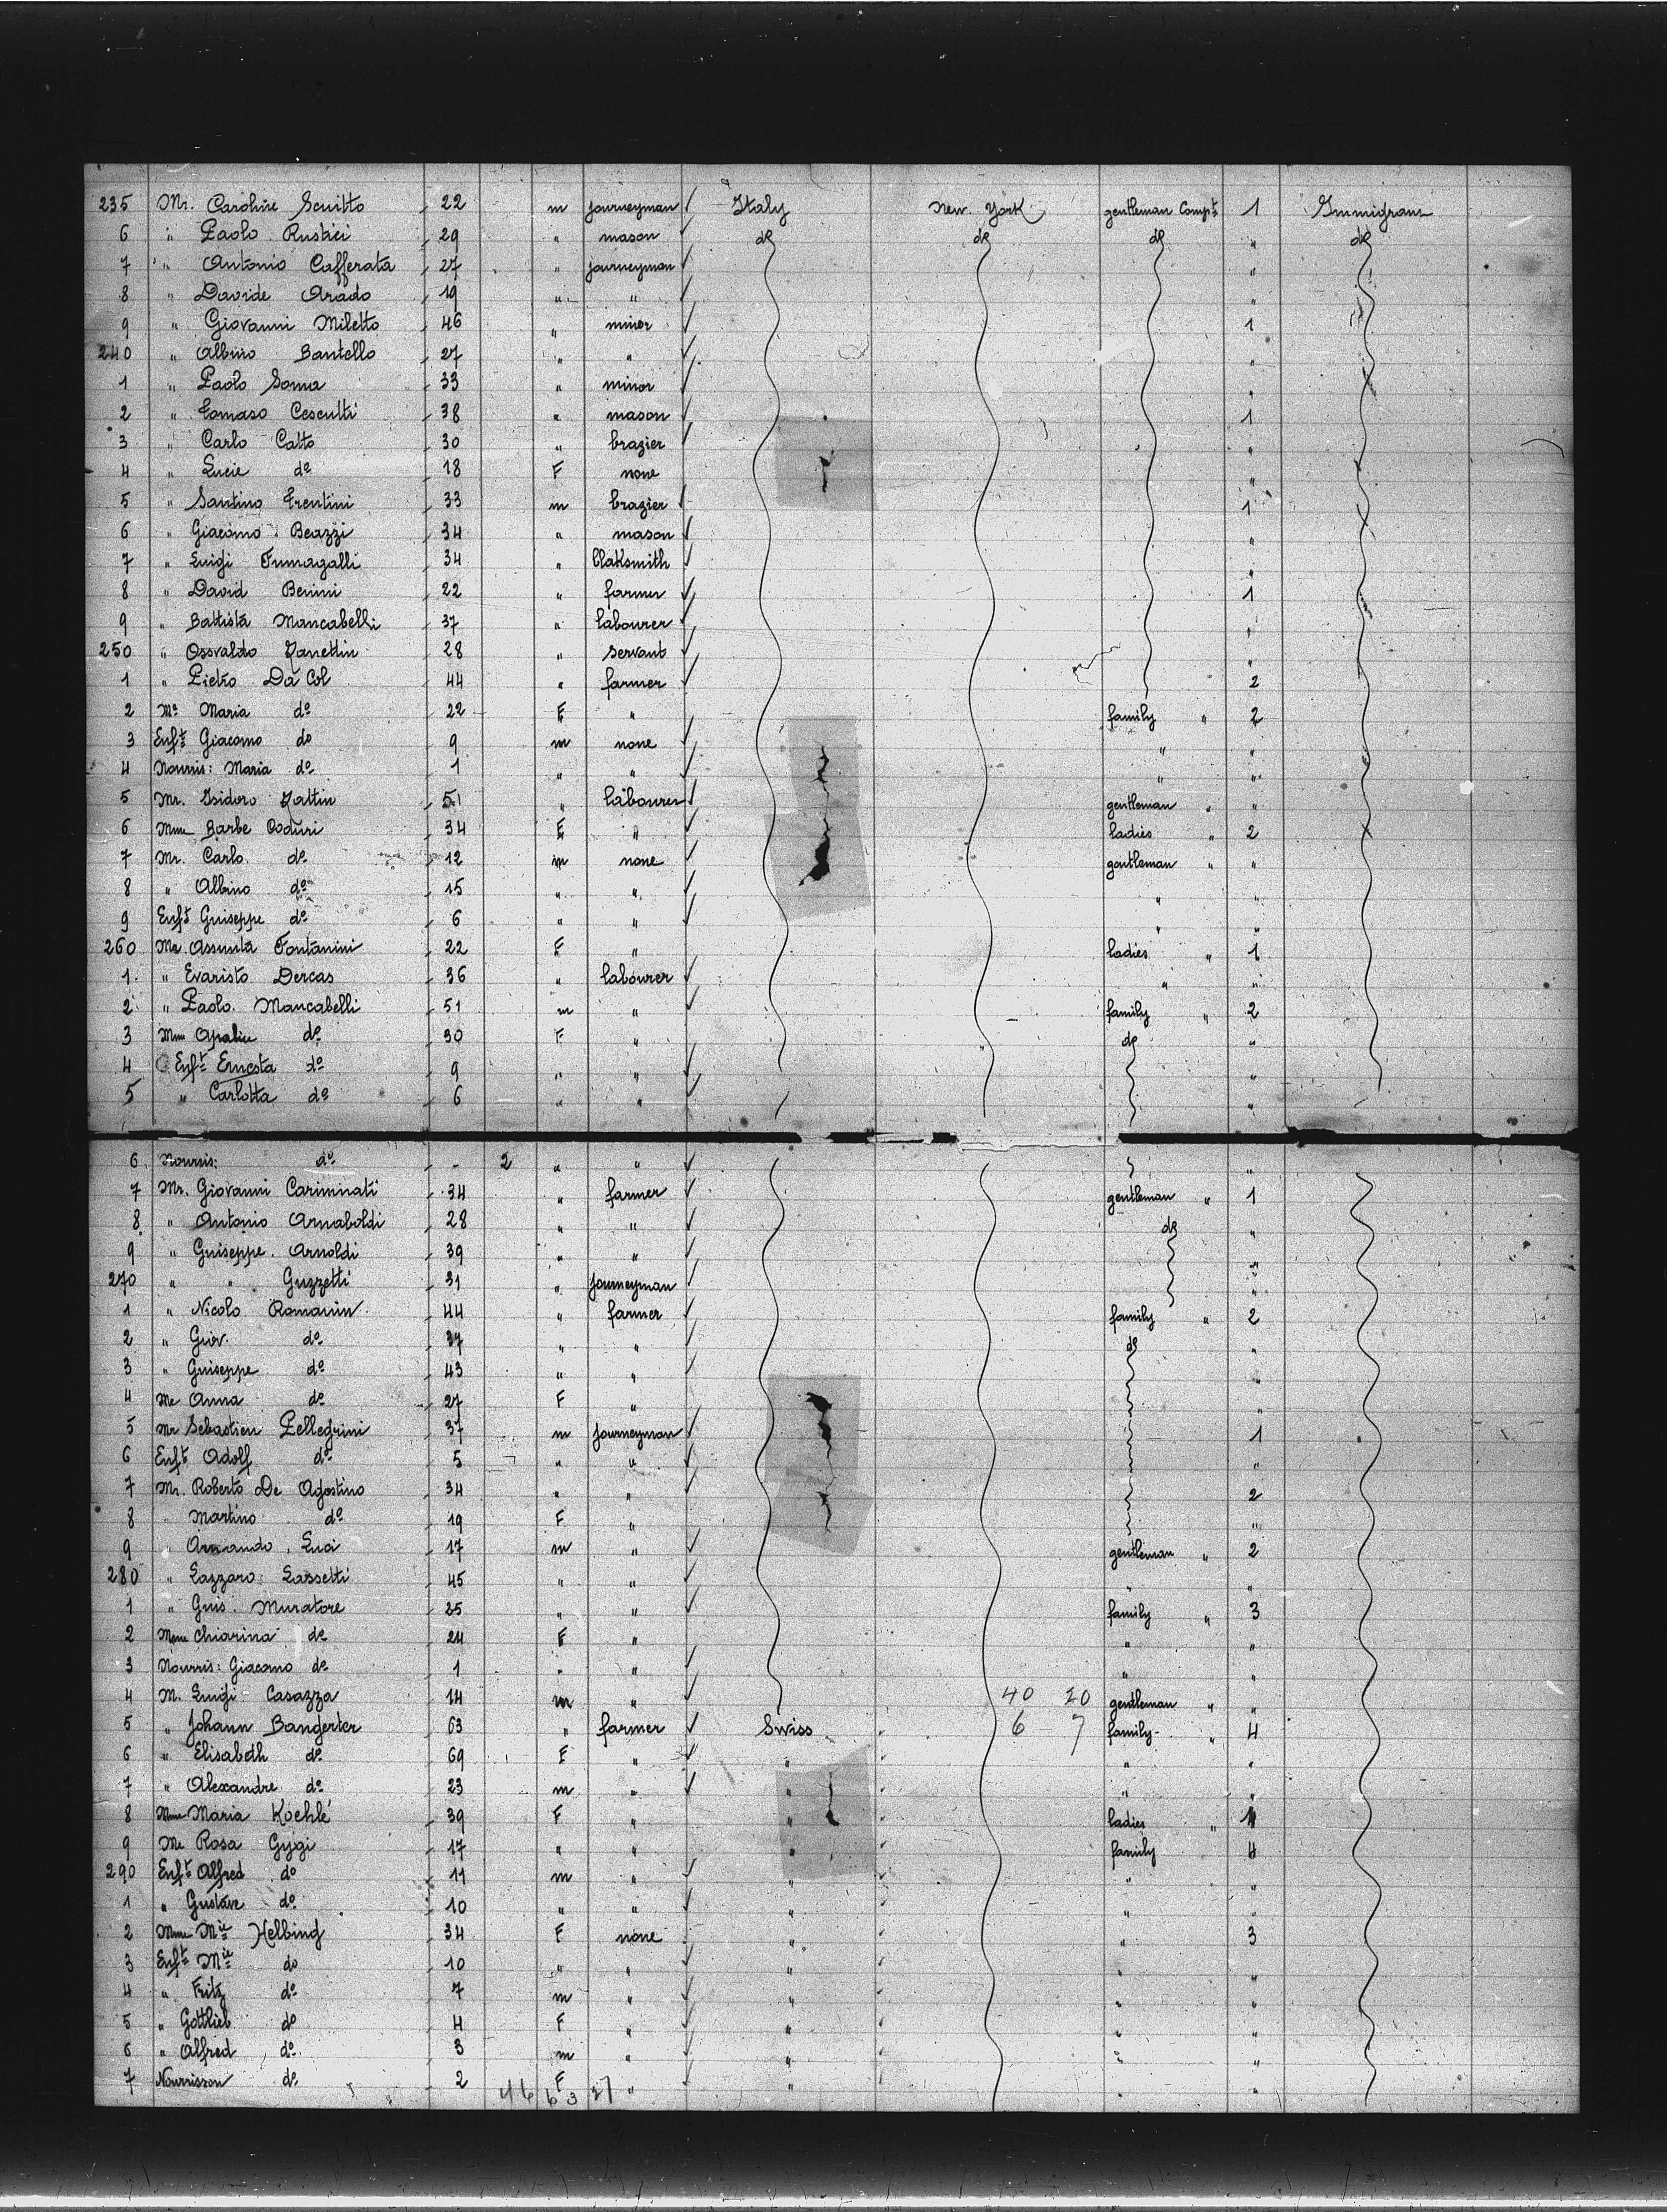 235 Mr. Caroline Scuitto 22 m journeyman Italy New. York gentleman Compt 1 Immigrans
6 " Paolo Rustici 29 " mason do do do " do
7 " Antonio Cafferata 27 " journeyman "
8 " Davide Arado 19 " " "
9 " Giovanni Miletto 46 " minor 1
240 " Albino Bantello 27 " " "
1 " Paolo Soma 33 " minor "
2 " Tomaso Cescutti 38 " mason 1
3 " Carlo Catto 30 " brazier "
4 " Lucie do 18 F none "
5 " Santino Trentini 33 m brazier 1
6 " Giacomo Beazzi 34 " mason "
7 " Luigi Fumagalli 34 " Blaksmith "
8 " David Benini 22 " farmer 1
9 " Battista Mancabelli 37 " labourer "
250 " Osvaldo Zanettin 28 " servant "
1 " Pietro Da Col 44 " farmer 2
2 Me Maria do 22 F " family " 2
3 Enft Giacomo do 9 m none " "
4 Nourris: Maria do 1 " " " "
5 Mr. Isidoro Zattin 51 " labourer gentleman " "
6 Mme Barbe Coduri 34 F " ladies " 2
7 Mr. Carlo do 12 m none gentleman " "
8 " Albino do 15 " " " "
9 Enft Guiseppe do 6 " " " "
260 Me. Assunta Fontanini 22 F " ladies " 1
1 " Evaristo Dercas 36 " labourer " "
2 " Paolo. Mancabelli 51 m " family " 2
3 Mme do 30 F " do "
4 Enft Ernesta do 9 " " "
5 " Carlotta do 6 " " "
6 Nourris: do - 2 " " "
7 Mr. Giovanni Cariminati 34 " farmer gentleman " 1
8 " Antonio Arnaboldi 28 " " do "
9 " Guiseppe. Arnoldi 39 " " "
270 " " Guzzetti 31 " journeyman "
1 " Nicolo Romanin 44 " farmer family " 2
2 " Giov. do 37 " " do "
3 " Guiseppe do 43 " " "
4 Me Anna do 27 F " "
5 Mr Sebastien Pellegrini 37 m journeyman 1
6 Enft Adolf do 5 " " "
7 Mr. Roberto De Agostino 34 " " 2
8 " Martino do 19 F " "
9 " Armando Luci 17 m " gentleman " 2
280 " Lazzaro Lassetti 45 " " " "
1 " Guis. Muratore 25 " " family " 3
2 Mme Chiarina do 24 F " " "
3 Nourris: Giacomo do 1 " " " "
4 M. Luigi Casazza 14 m " 40 20 gentleman " "
5 " Johann Bangerter 63 " farmer Swiss 6 7 family " 4
6 " Elisabeth do 69 F " " " "
7 " Alexandre do 23 m " " " "
8 Mme Maria Koehlé 39 F " " ladies " 1
9 Me Rosa Gygi 17 " " " family 4
290 Enft Alfred do 11 m " " " "
1 " Gustave do 10 " " " " "
2 Mme Mie Helbing 34 F none " " 3
3 Enft Mie do 10 " " " " "
4 " Fritz do 7 m " " " "
5 " Gottlieb do 4 F " " " "
6 " Alfred do 3 m " " " "
7 Nourrisson do 2 F " " " "